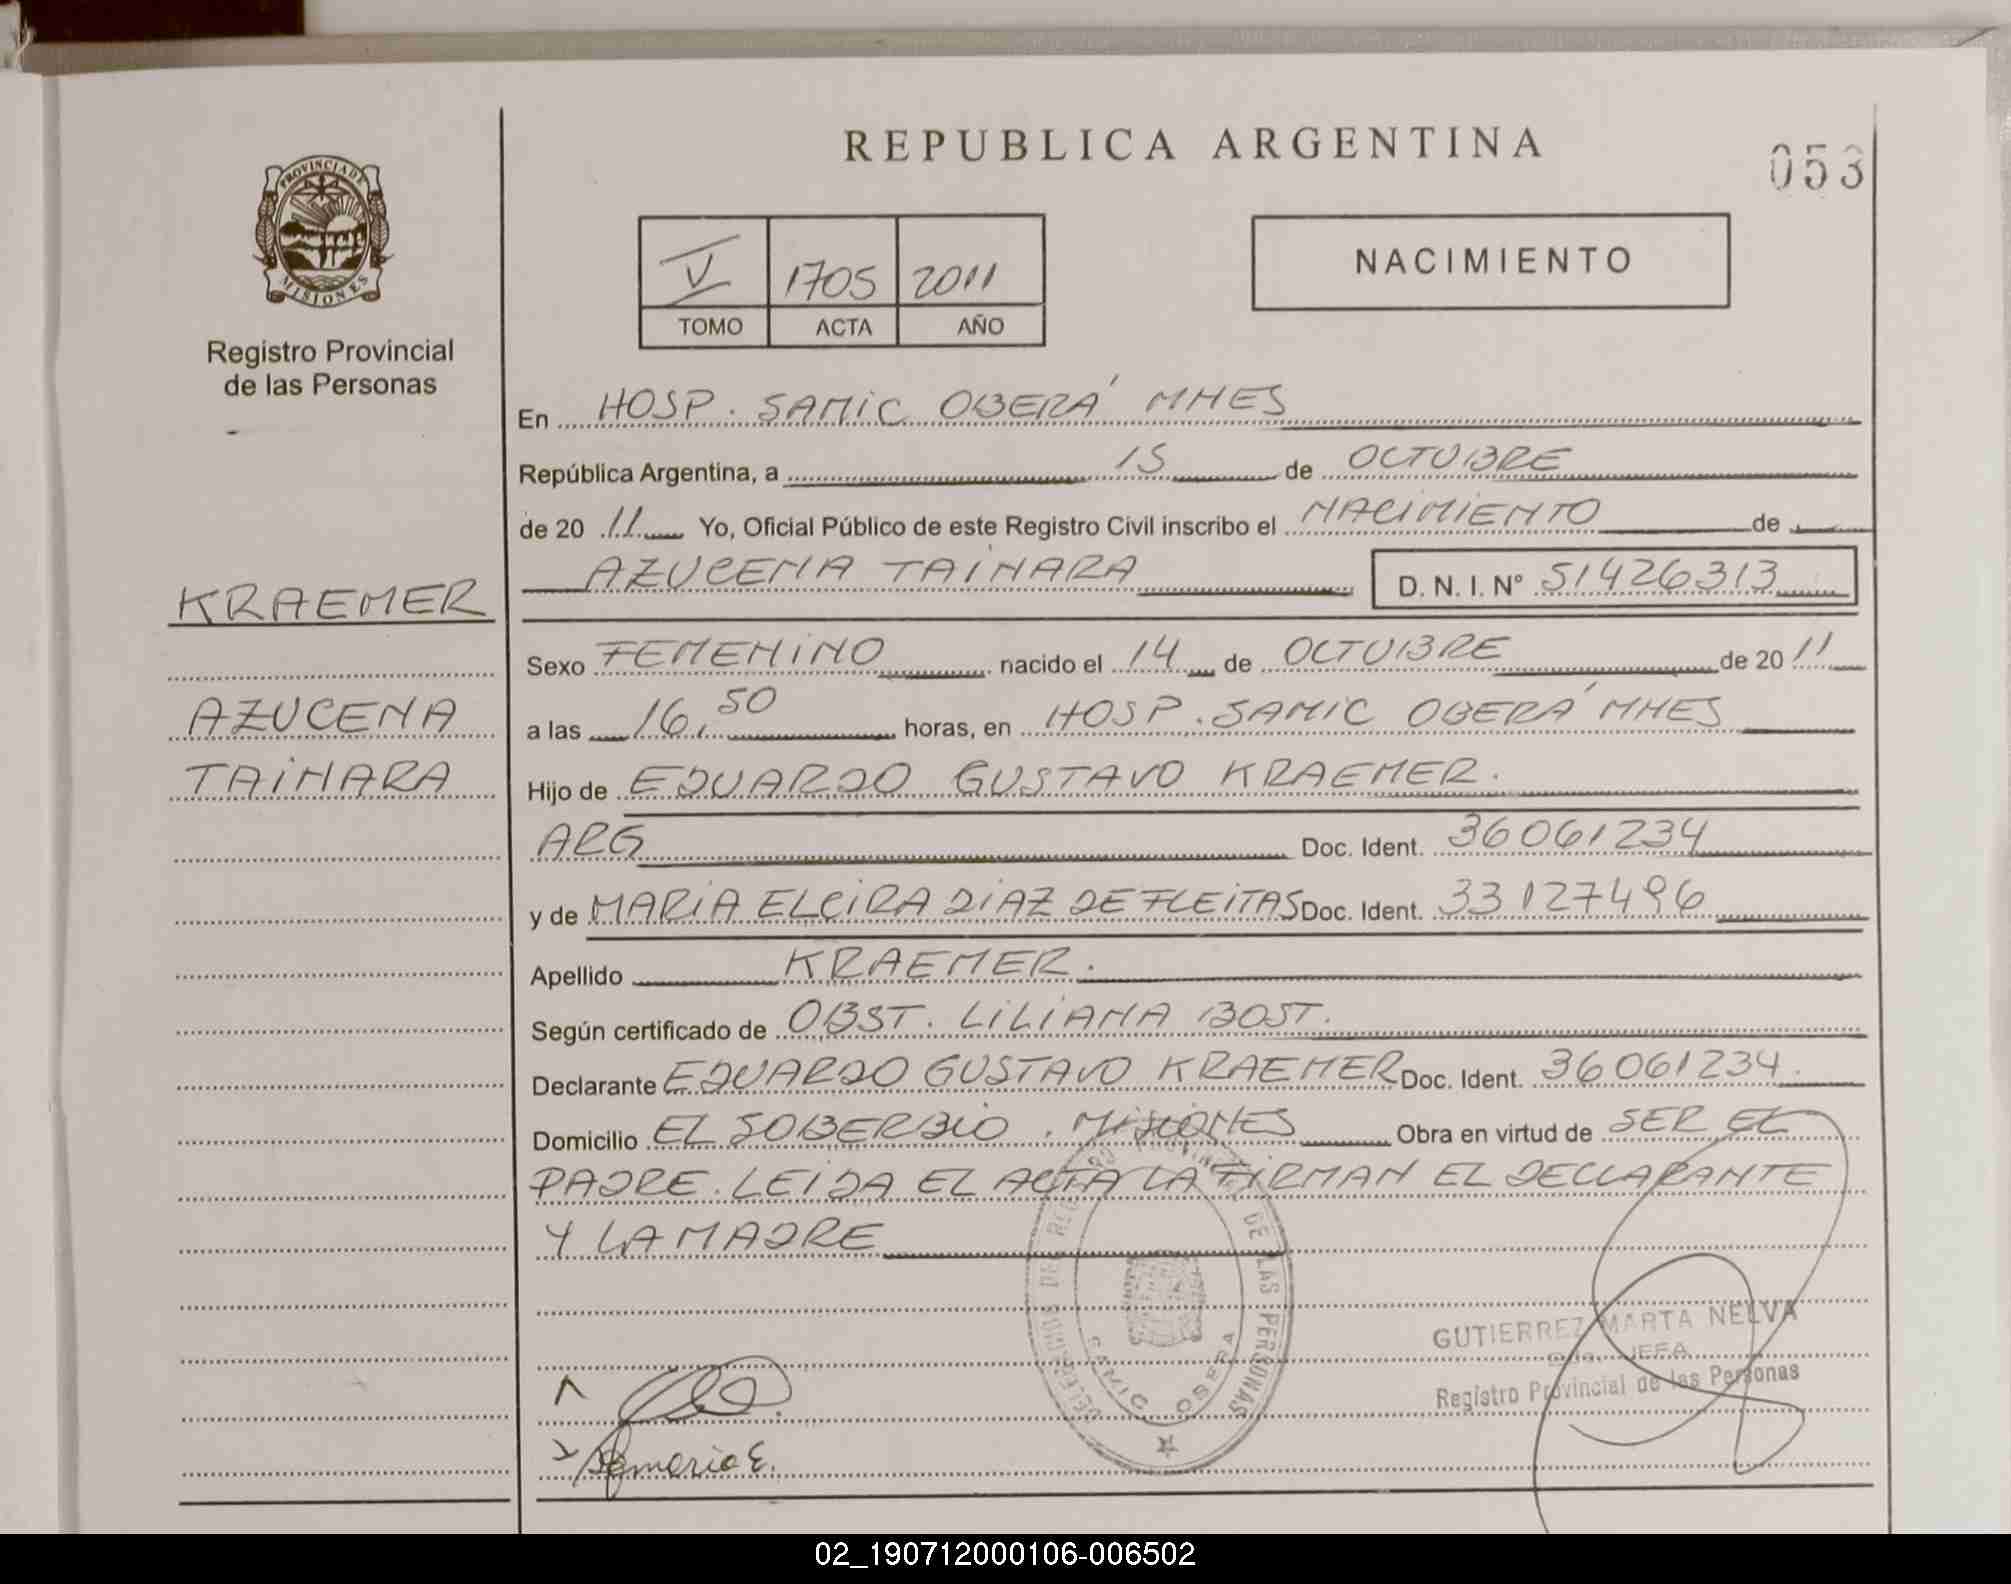 REPUBLICA ARGENTINA
053
PROVINCIA DE
MISIONES
Registro Provincial
de las Personas
V 1705 2011
TOMO ACTA AÑO
NACIMIENTO
En HOSP. SAMIC OBERÁ MNES
República Argentina, a 15 de OCTUBRE
de 20 11 Yo, Oficial Público de este Registro Civil inscribo el NACIMIENTO de
AZUCENA TAINARA D. N. I. Nº 51426313
KRAEMER
AZUCENA
TAINARA
Sexo FEMENINO nacido el 14 de OCTUBRE de 20 11
a las 16,50 horas, en HOSP. SAMIC OBERÁ MNES
Hijo de EDUARDO GUSTAVO KRAEMER.
ARG Doc. Ident. 36061234
y de MARIA ELCIRA DIAZ DE FLEITAS Doc. Ident. 33127496
Apellido KRAEMER.
Según certificado de OBST. LILIANA BOST.
Declarante EDUARDO GUSTAVO KRAEMER Doc. Ident. 36061234.
Domicilio EL SOBERBIO. MISIONES Obra en virtud de SER EL
PADRE. LEIDA EL ACTA LA FIRMAN EL DECLARANTE
Y LA MADRE
DE LAS PERSONAS
SAMIC OBERA
GUTIERREZ MARTA NELVA
JEFA
Registro Provincial de las Personas
maria E.
02_190712000106-006502